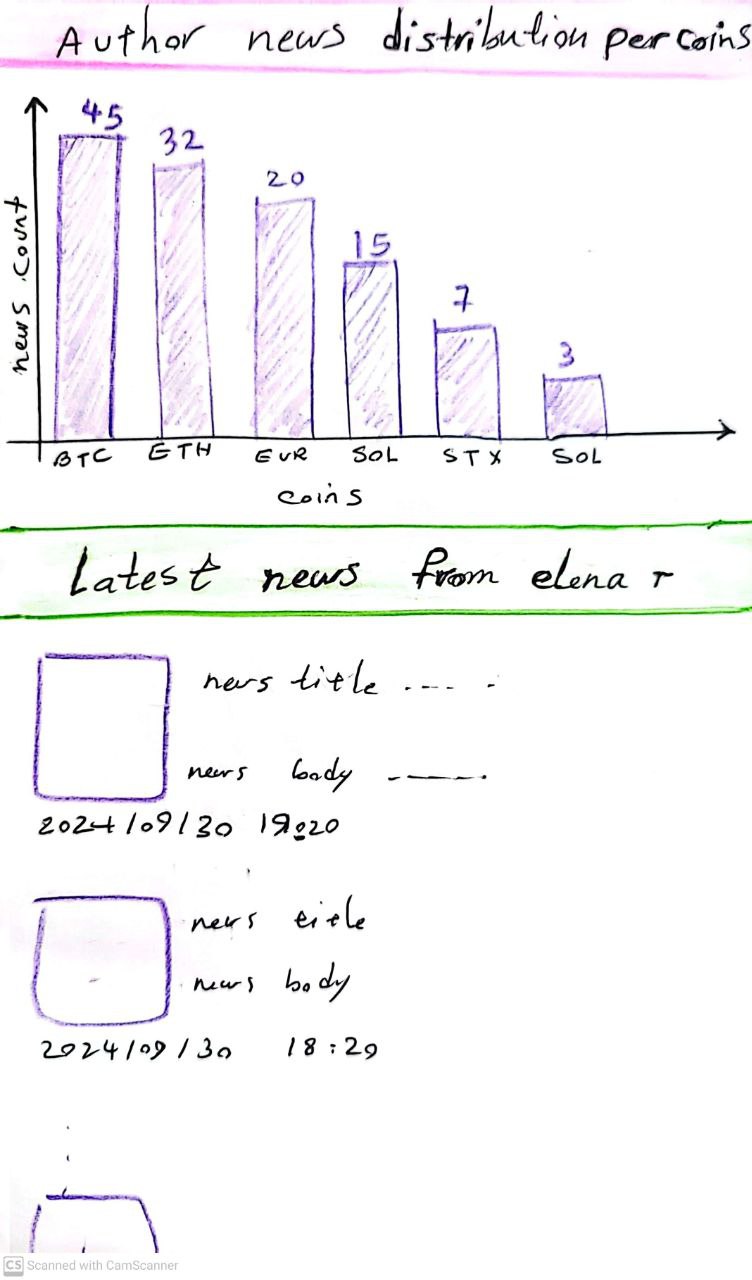 Author news distribution per coins
45
32
20
15
7
3
news count
BTC ETH EUR SOL STX SOL
coins
Latest news from elena r
news title .... .
news body
2024/09/30 19:20
news title
news body
2024/09/30 18:20
CS Scanned with CamScanner